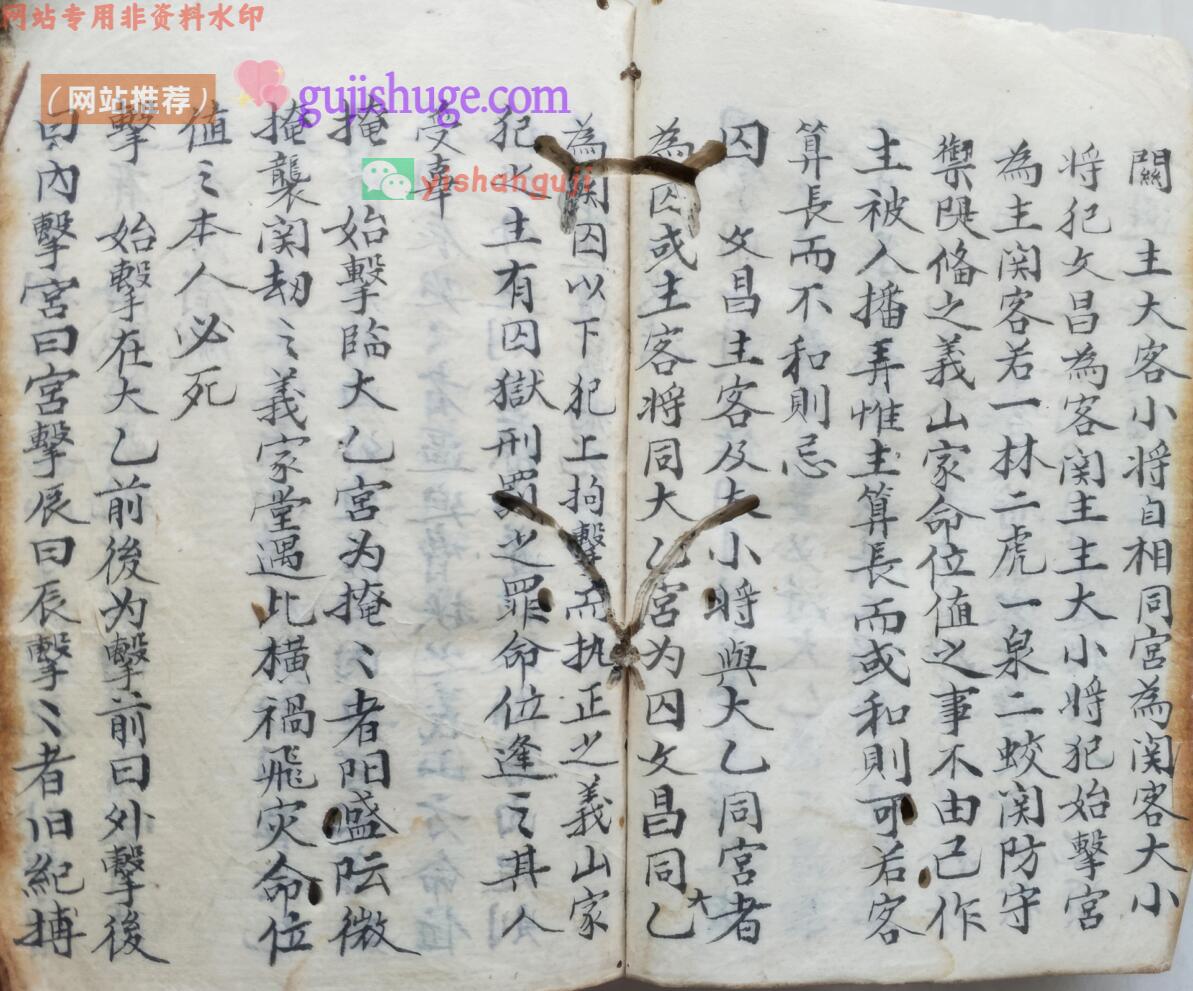 网站专用非资料水印
（网站推荐）
gujishuge.com
yishanguji
關 主大客小将自相同宮為関客大小
将犯文昌為客関主主大小将犯始擊宮
為主関客若一林二虎一泉二蛟関防守
禦隄俻之義山家命位值之事不由己作
主被人播弄惟主算長而或和則可若客
算長而不和則忌
囚 文昌主客及大小将與大乙同宮者
為囚或主客将同大乙宮为囚文昌同大乙
為関囚以下犯上拘擊而执正之義山家
犯之主有囚獄刑罰之罪命位逢之其人
受辜
掩 始擊臨大乙宮为掩〻者阳盛阮微
掩襲関劫之義家堂遇比橫禍飛灾命位
值之本人必死
擊 始擊在大乙前後为擊前曰外擊後
曰內擊宮曰宮擊辰曰辰擊〻者旧紀搏